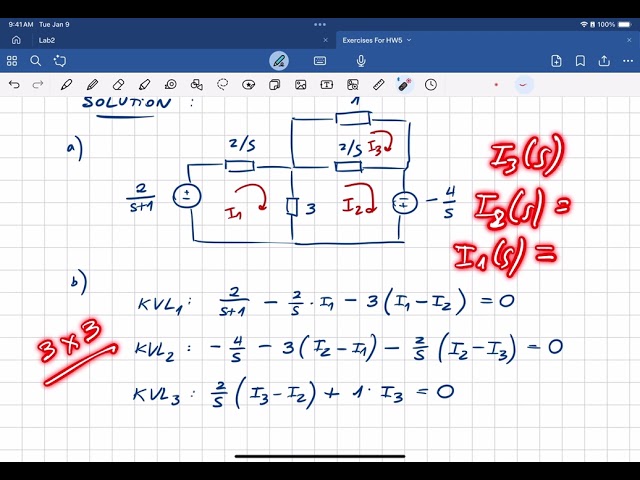 9:41 AM Tue Jan 9
100%
Lab2
Exercises For HW5
SOLUTION :
a)
1
2/s
2/s
I₃
2/(s+1)
I₁
3
I₂
-4/s
I₃(s)
I₂(s) =
I₁(s) =
b)
KVL₁ : 2/(s+1) - 2/s · I₁ - 3(I₁ - I₂) = 0
3 x 3
KVL₂ : - 4/s - 3(I₂ - I₁) - 2/s (I₂ - I₃) = 0
KVL₃ : 2/s (I₃ - I₂) + 1 · I₃ = 0